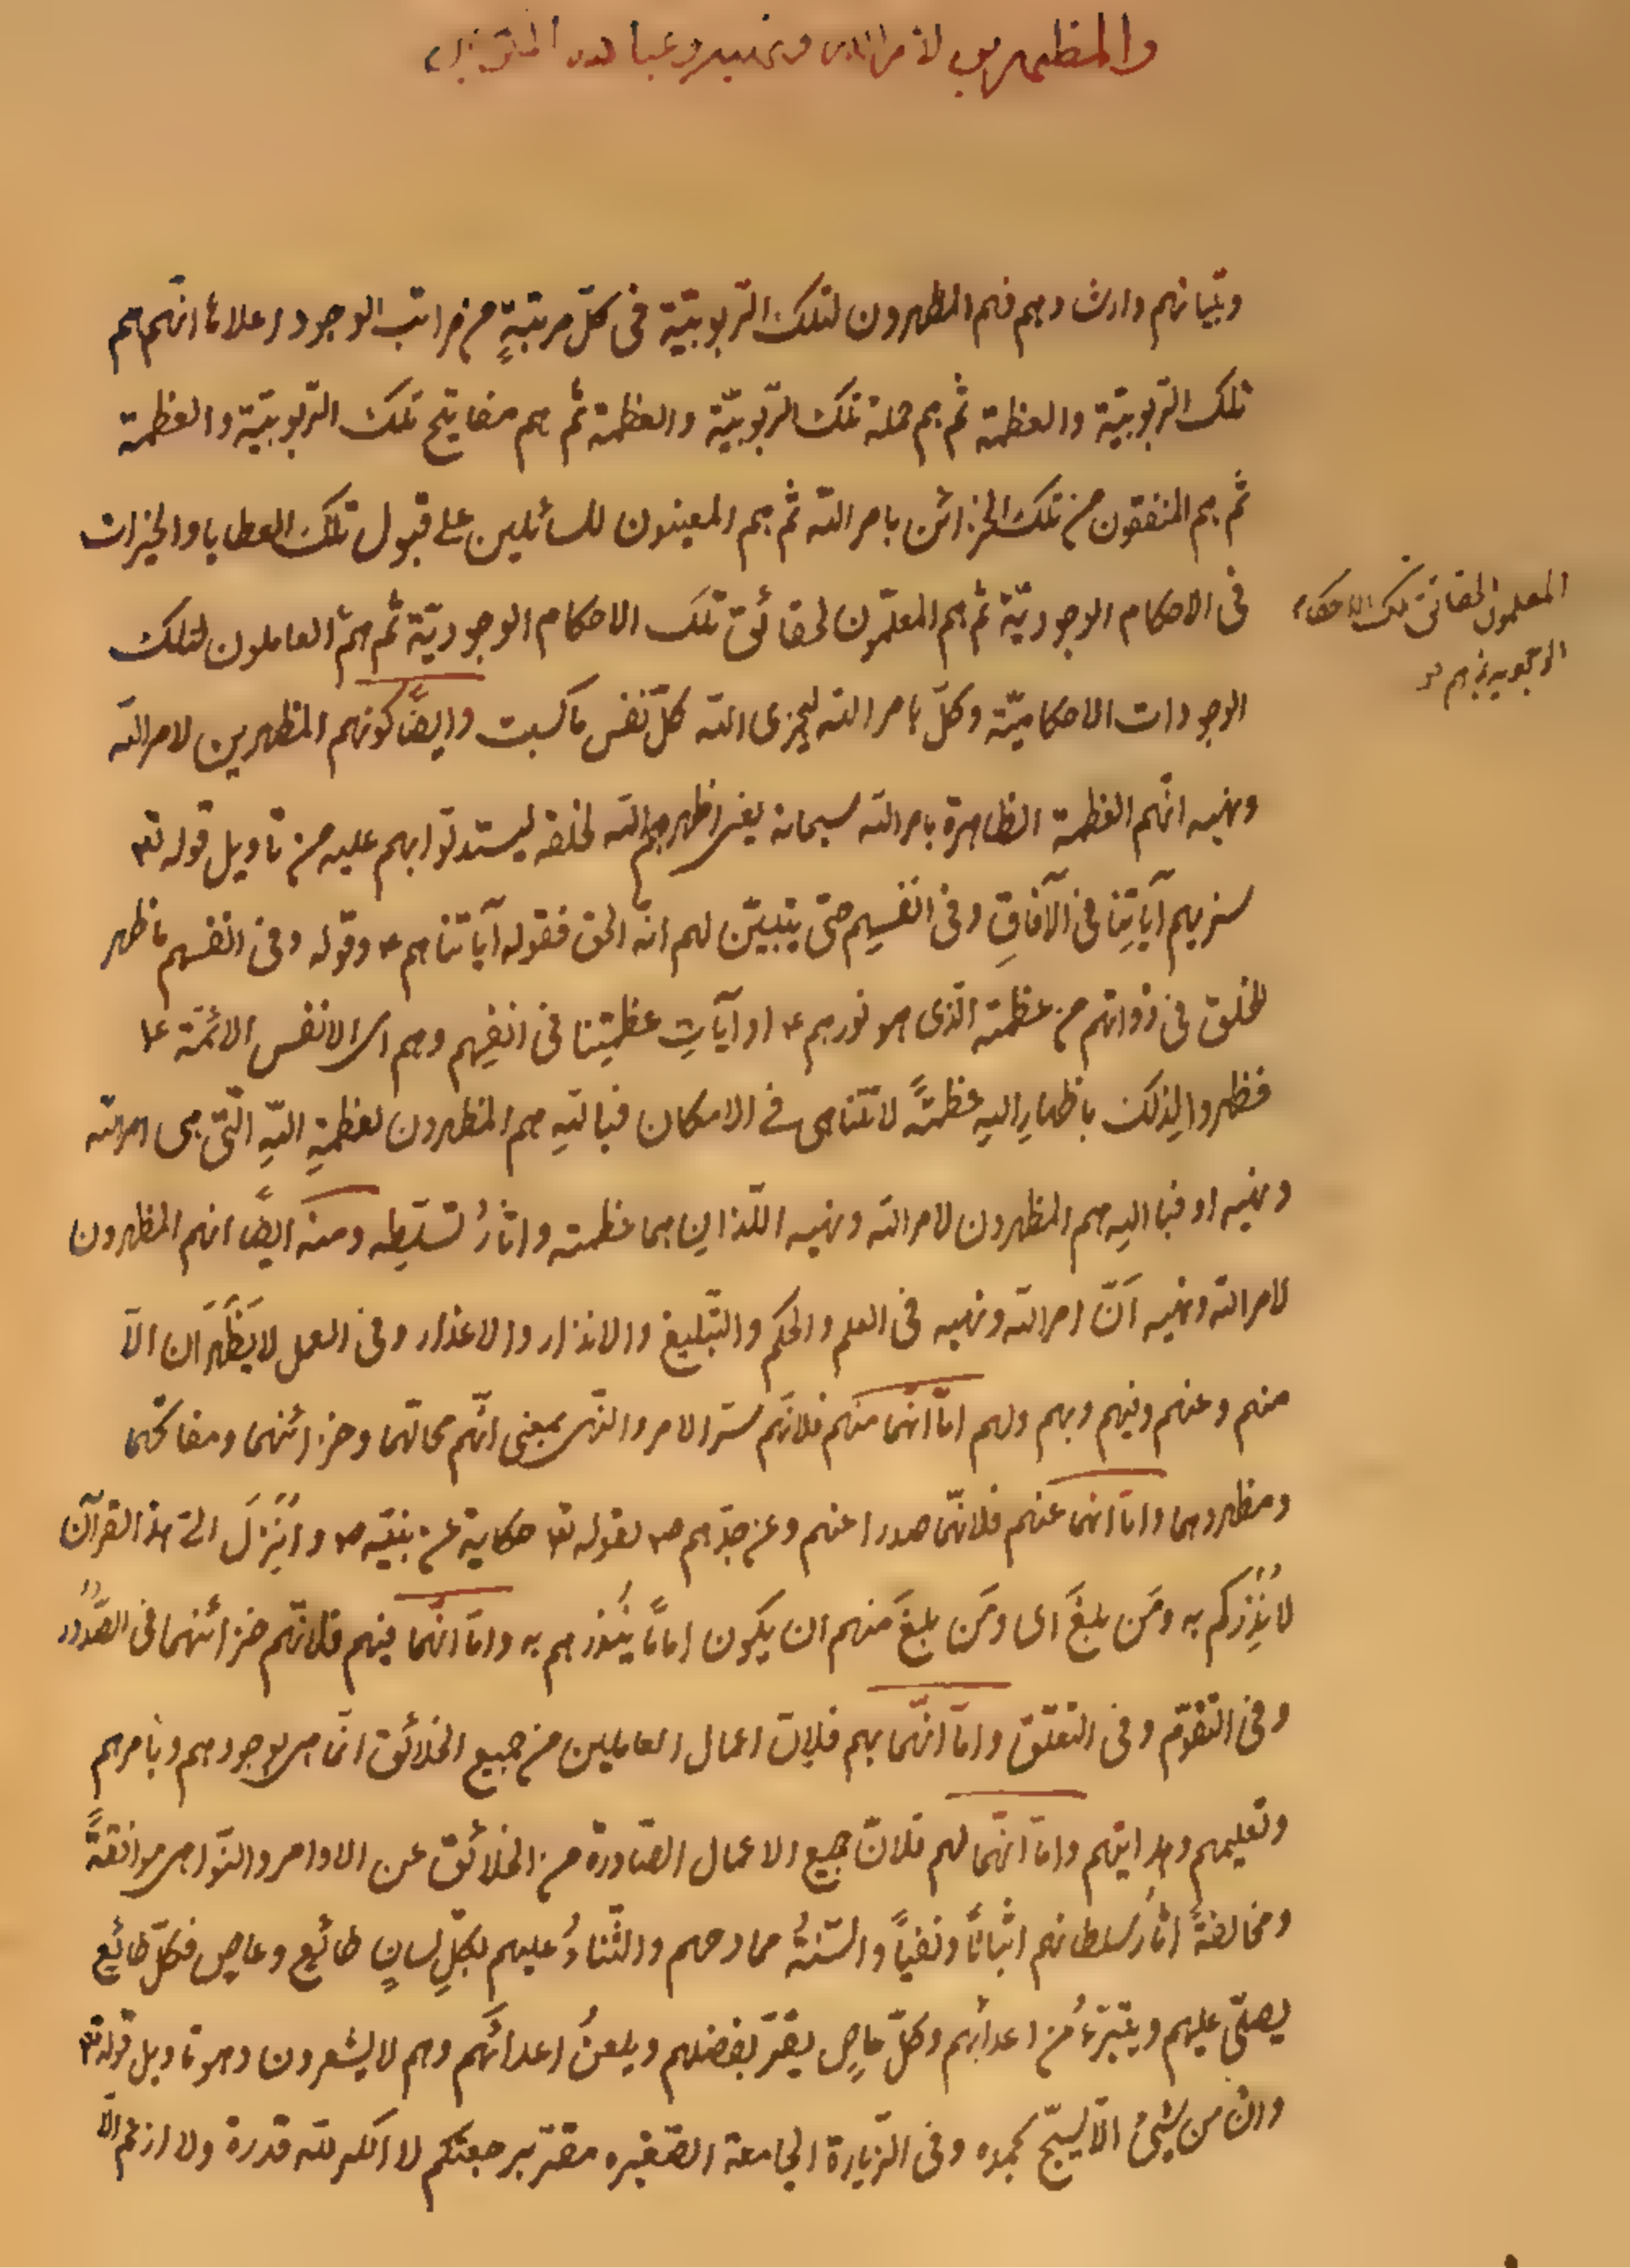 والمظهرين لأمر الله ونهيه وعباده المكرمين
وتبيانهم وارشادهم فهم المظهرون لتلك الرّبوبيّة فى كلّ مرتبةٍ من مراتب الوجود اعلاما انّهم هم
تلك الرّبوبيّة والعظمة ثم هم حملة تلك الرّبوبيّة والعظمة ثم هم مفاتيح تلك الرّبوبيّة والعظمة
ثم هم المنفقون من تلك الخزائن بامر اللّه ثم هم المعينون للسائلين على قبول تلك العطايا والخيرات
فى الاحكام الوجوديّة ثم هم المعلّمون لحقائق تلك الاحكام الوجوديّة ثم هم العاملون لتلك
المعلمون لحقائق تلك الاحكام
الوجودات الاحكاميّة وكلّ بامر اللّه ليجزى اللّه كلّ نفس ما كسبت وايضًا كونهم المظهرين لامر اللّه
ونهيه انّهم العظمة الظاهرة بامر اللّه سبحانه يعنى اظهرهم اللّه لخلقه ليستدلّوا بهم عليه من تاويل قوله تع
سنريهم آياتِنا فى الآفاقِ وفى انفسِهم حتى يتبيّن لهم انّه الحق فقوله آياتنا هم ع وقوله وفى انفسهم ما ظهر
للخلق فى ذواتهم من عظمته الّذى هو نورهم ع او آياتِ عظمتِنا فى انفسِهم وهم اى الانفس الائمّة ع
فظهروا لِذلك باظهارِ اللهِ عظمتَهً لا تتناهى فى الامكان فباللّهِ هم المظهرون لعظمةِ اللّهِ الّتى هى امر اللّه
ونهيه او فبا اللهِ هم المظهرون لامر اللّه ونهيه اللّذانِ هما عظمته واثارُ تسلّطِه ومنه ايضًا انهم المظهرون
لامر اللّه ونهيه اَنّ امر اللّه ونهيه فى العلم والحكم والتّبليغ والانذار والاعذار وفى العمل لا يَظْهَرَان الاّ
منهم وعنهم وفيهم وبهم ولهم امّا انّهما منهم فلانّهم سرّ الامر والنّهى بمعنى انّهم محالّهما وخزائنهما ومفاتحهما
ومظهروهما وامّا انهما عنهم فلانّهما صدرا عنهم وعن جدّهم ص لقوله تع حكاية عن نبيّه ص واُنْزِلَ الىّ هذا القرآن
لاُنْذِرَكم به ومَن بلغَ اى ومَن بلغَ منهم ان يكون امامًا يُنذرهم به وامّا انّهما فيهم فلانّهم خزائنهما فى الصّدور
وفى التقوّم وفى التعلّق وامّا انّهما بهم فلِانّ اعمال العاملين من جميع الخلائق انّما هى بوجودهم وبامرهم
وتعليمهم وهدايتهم وامّا انّهما لهم فلانّ جميع الاعمال الصّادرة من الخلائق عن الاوامر والنّواهى موافقةً
ومخالفةً اثارُ سلطانهم اثباتًا ونفياً والسنةُ ممادحهم والثّناءُ عليهم بكلِّ لسانٍ طائِعٍ وعاصٍ فكلّ طائع
يصلّى عليهم ويتبرّءُ من اعدائهم وكلّ عاصٍ يقرّ بفضلهم ويلعنُ اعدائَهم وهم لا يشعرون وهو تاويل قوله تع
وان من شئ الاّ يسبّح بحمده وفى الزّيارة الجامعة الصّغيره مقرّ برجعتكم لا انكر للّه قدرة ولا ازعم الّا